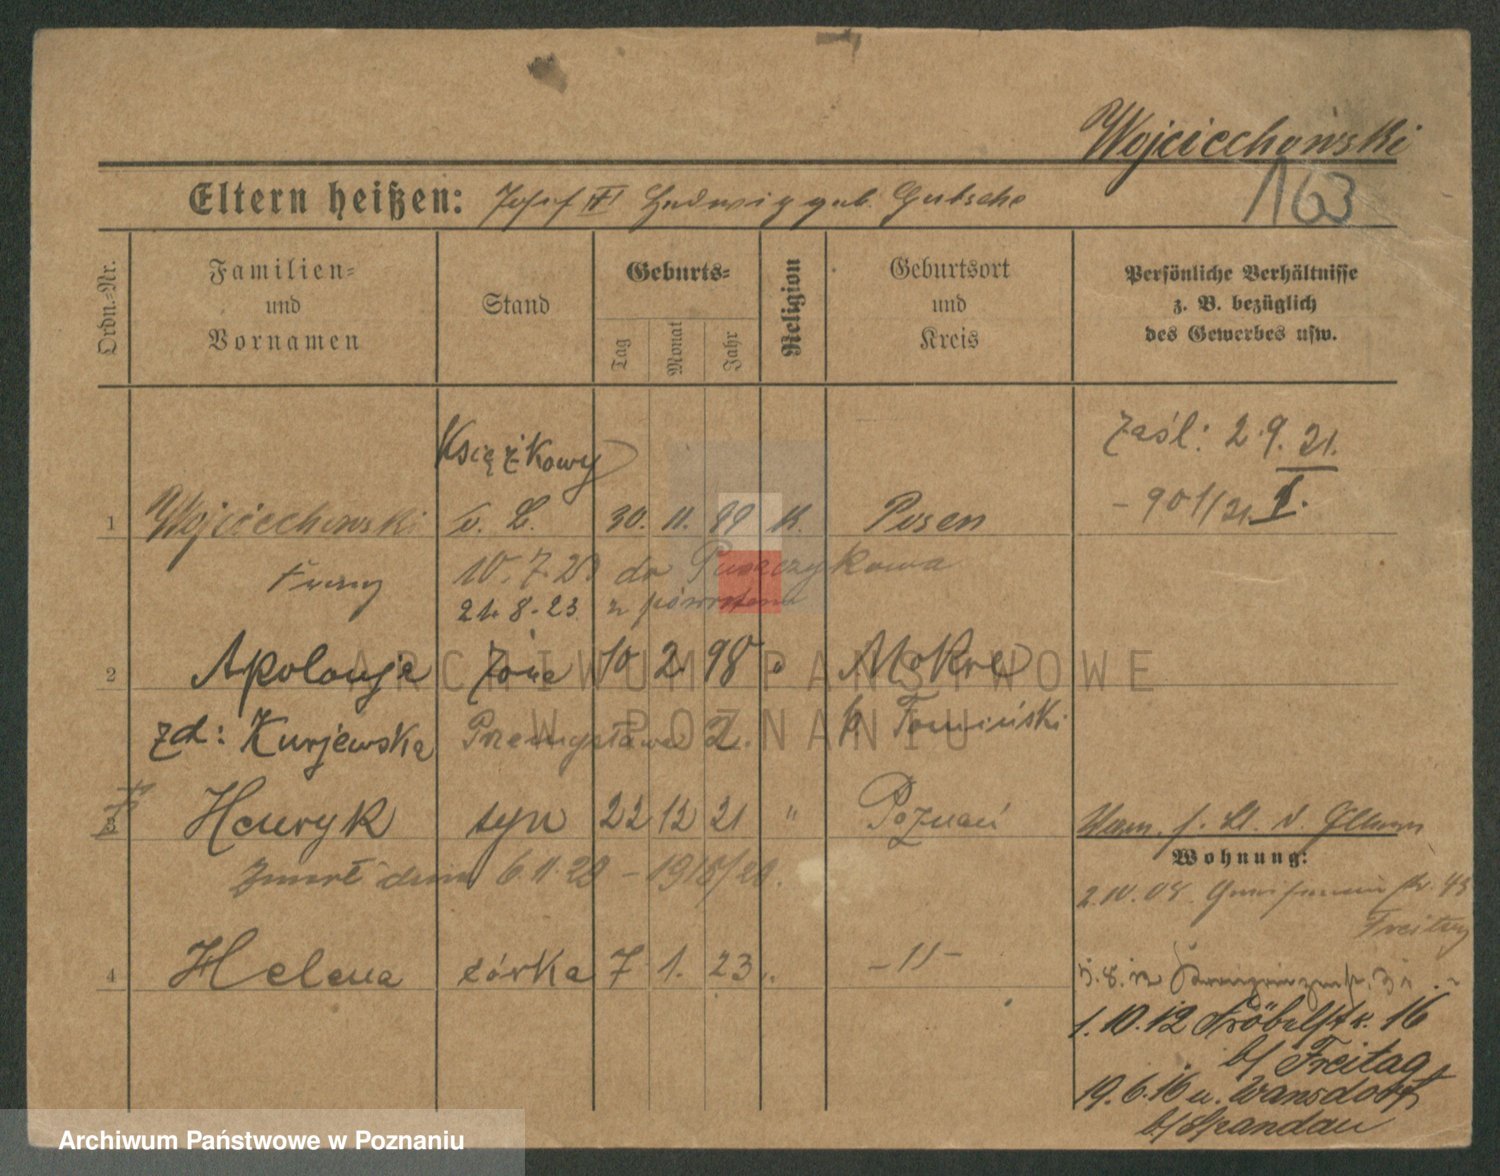 Wojciechowski
163
Eltern heißen: Josef III Hedwig geb. Gutsche
Ordn.=Nr.
Familien=
und
Vornamen
Stand
Geburts=
Tag
Monat
Jahr
Religion
Geburtsort
und
Kreis
Persönliche Verhältnisse
z. B. bezüglich
des Gewerbes usw.
Zaśl: 2.9.21.
Książkowy
- 901/21. I.
1 Wojciechowski 30. 11. 99 K. Posen
Franz 10.7.23 do Puszczykowa
21.8.23 z powrotem
2 Apolonja żona 10 2. 98 " Mokre
zd: Kurjewska Przemysława 2.
3 Henryk syn 22 12 21 " Poznań
Wohnung:
Zmarł dnia 6.11.28 - 1916/28.
2.IV.08. Gneisenaustr. 43
Freitag
4 Helena córka 7 1. 23 " - 11 -
1.10.12 Fröbelstr. 16
b/ Freitag
19.6.16 n. Wansdorf
b/ Spandau
ARCHIWUM PAŃSTWOWE
W POZNANIU
Archiwum Państwowe w Poznaniu